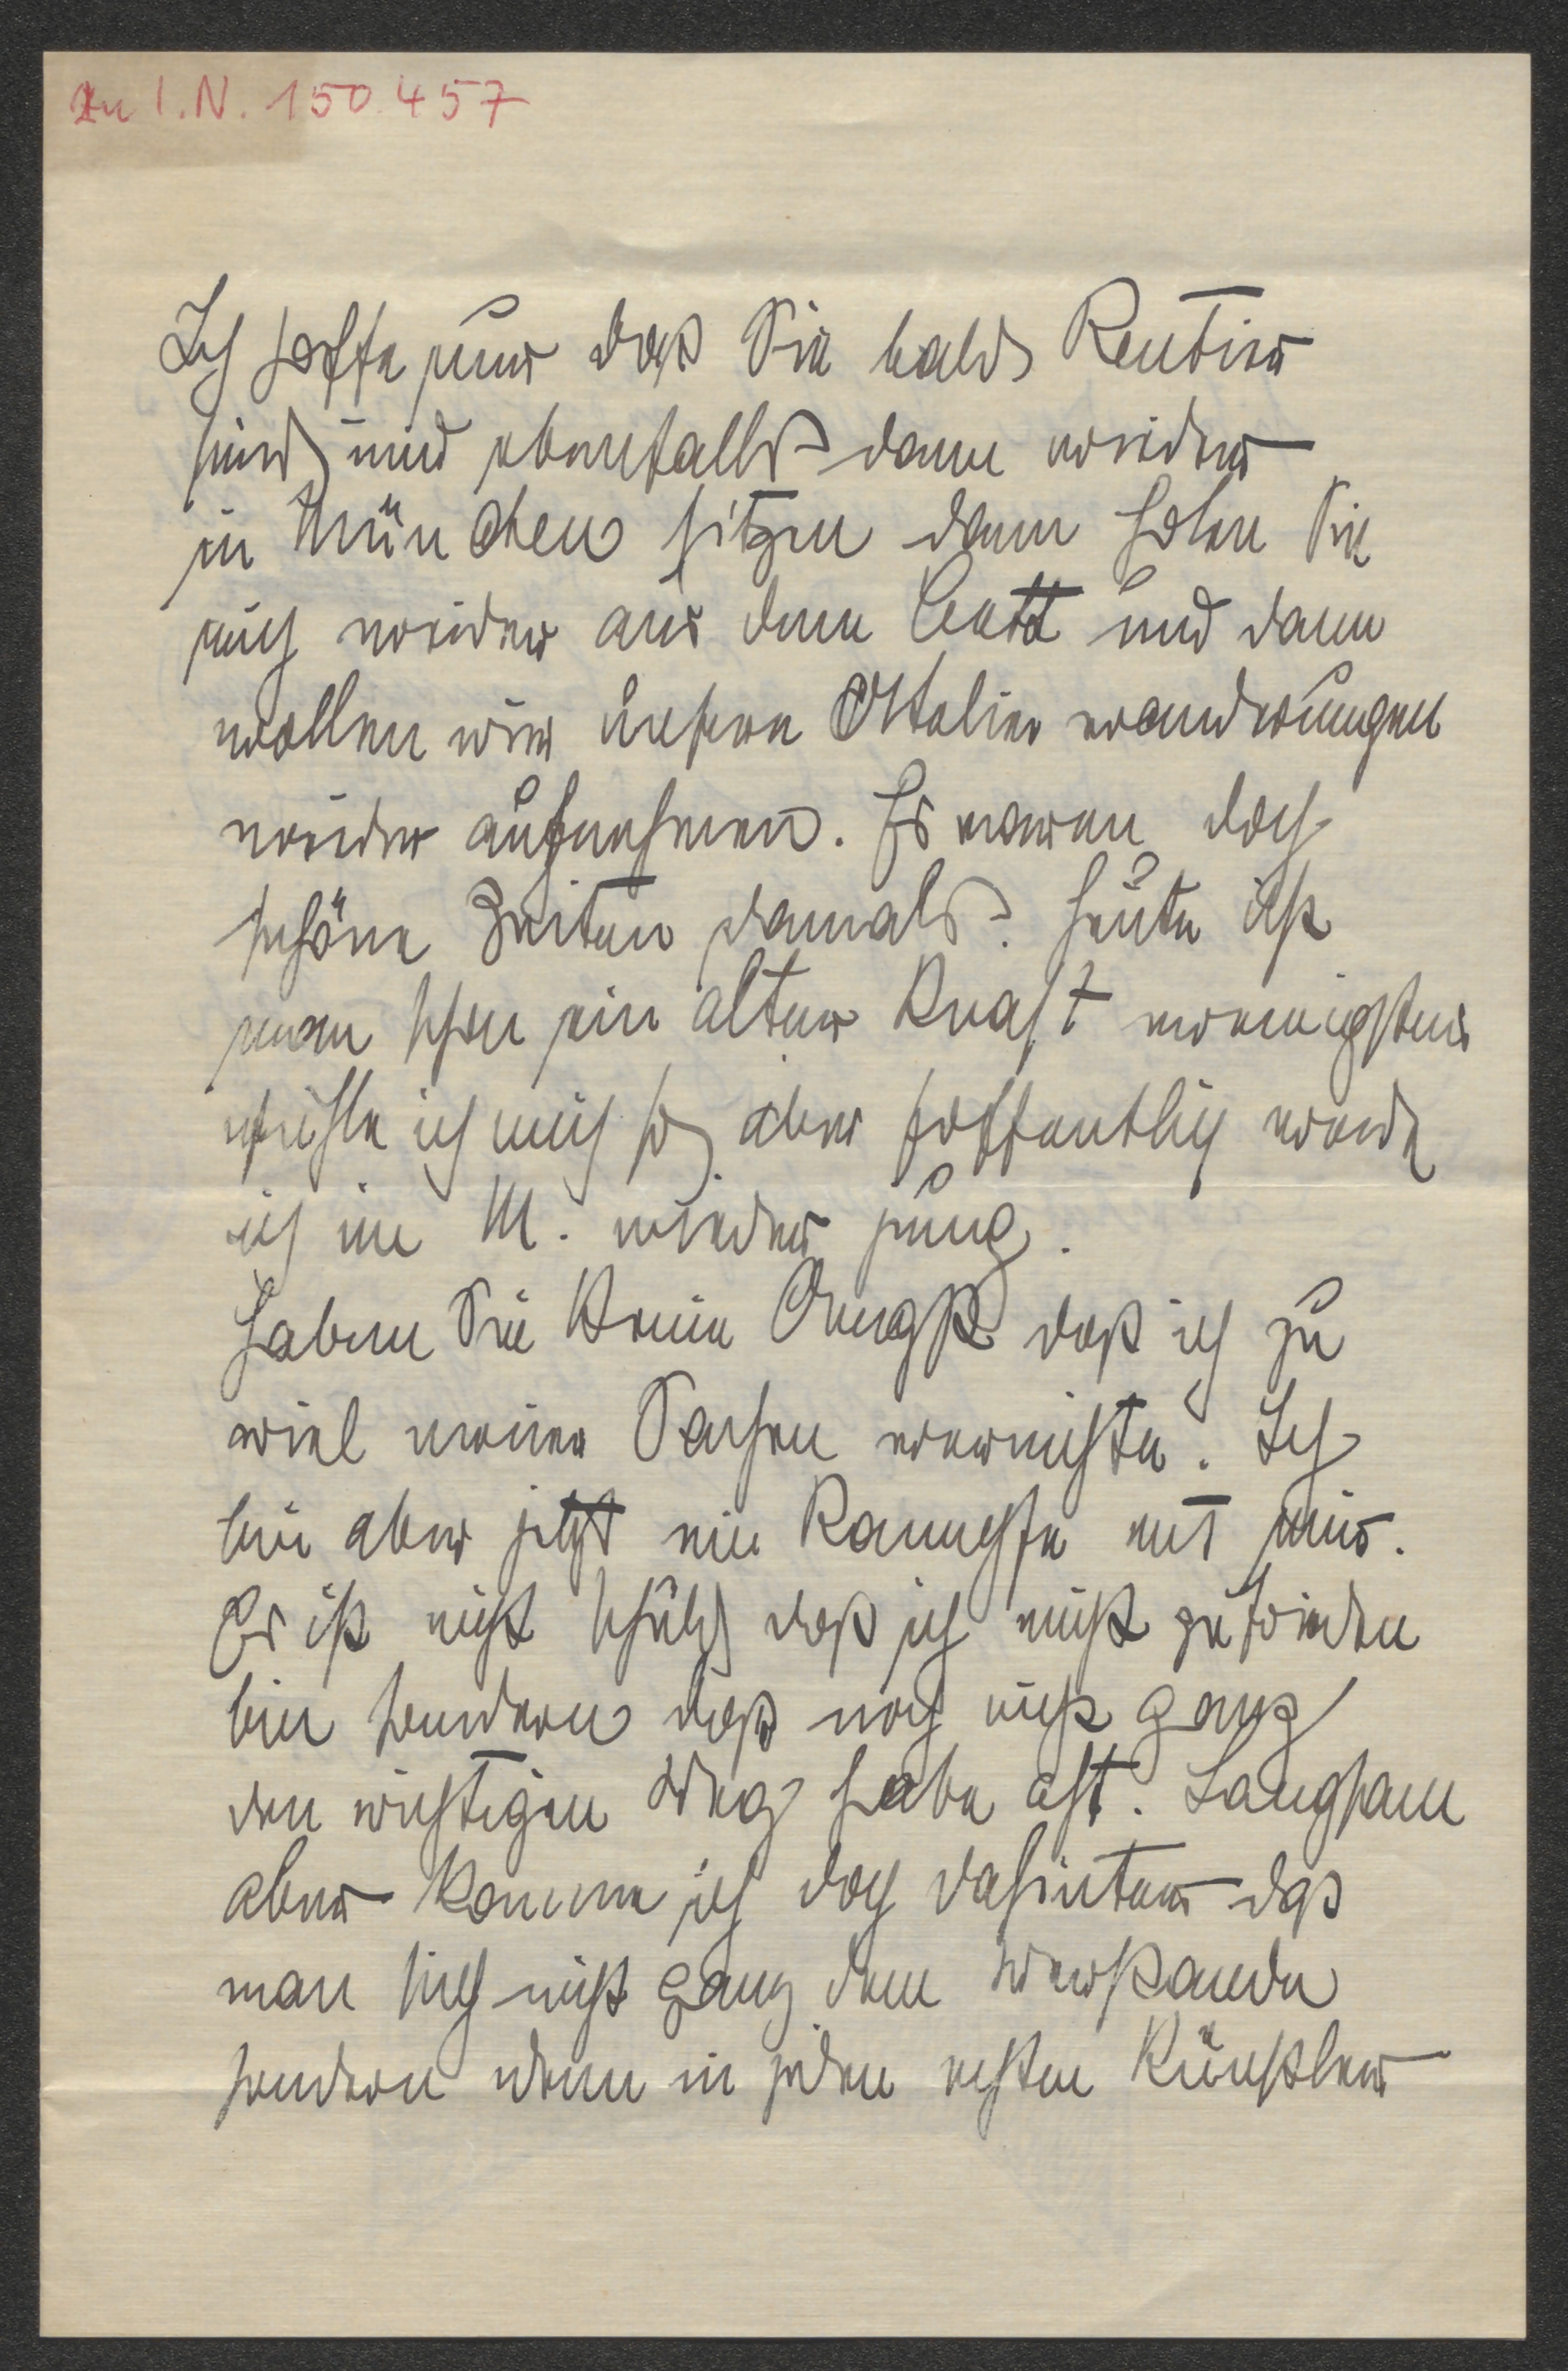 Zu I.N. 150.457
Ich hoffe nur daß Sie bald Rentier
sind und ebenfalls dann wieder
in München sitzen dann holen Sie
mich wieder aus dem Bett und dann
wollen wir unsere Attelier wanderungen
wieder aufnehmen. Es waren doch
schöne Zeiten damals. Heute ist
man schon ein alter Knast wenigstens
fühle ich mich so, aber hoffentlich werde
ich in M. wieder jung.
Haben Sie keine Angst daß ich zu
viel meiner Sachen vernichte. Ich
bin aber jetzt ein mit mir.
Es ist nicht Schuld daß ich nicht zufrieden
bin sondern daß noch nicht ganz
den richtigen Weg habe oft. Langsam
aber komme ich doch dahinter daß
man sich nicht ganz dem Verstande
sondern dem in jeden echten Künstler